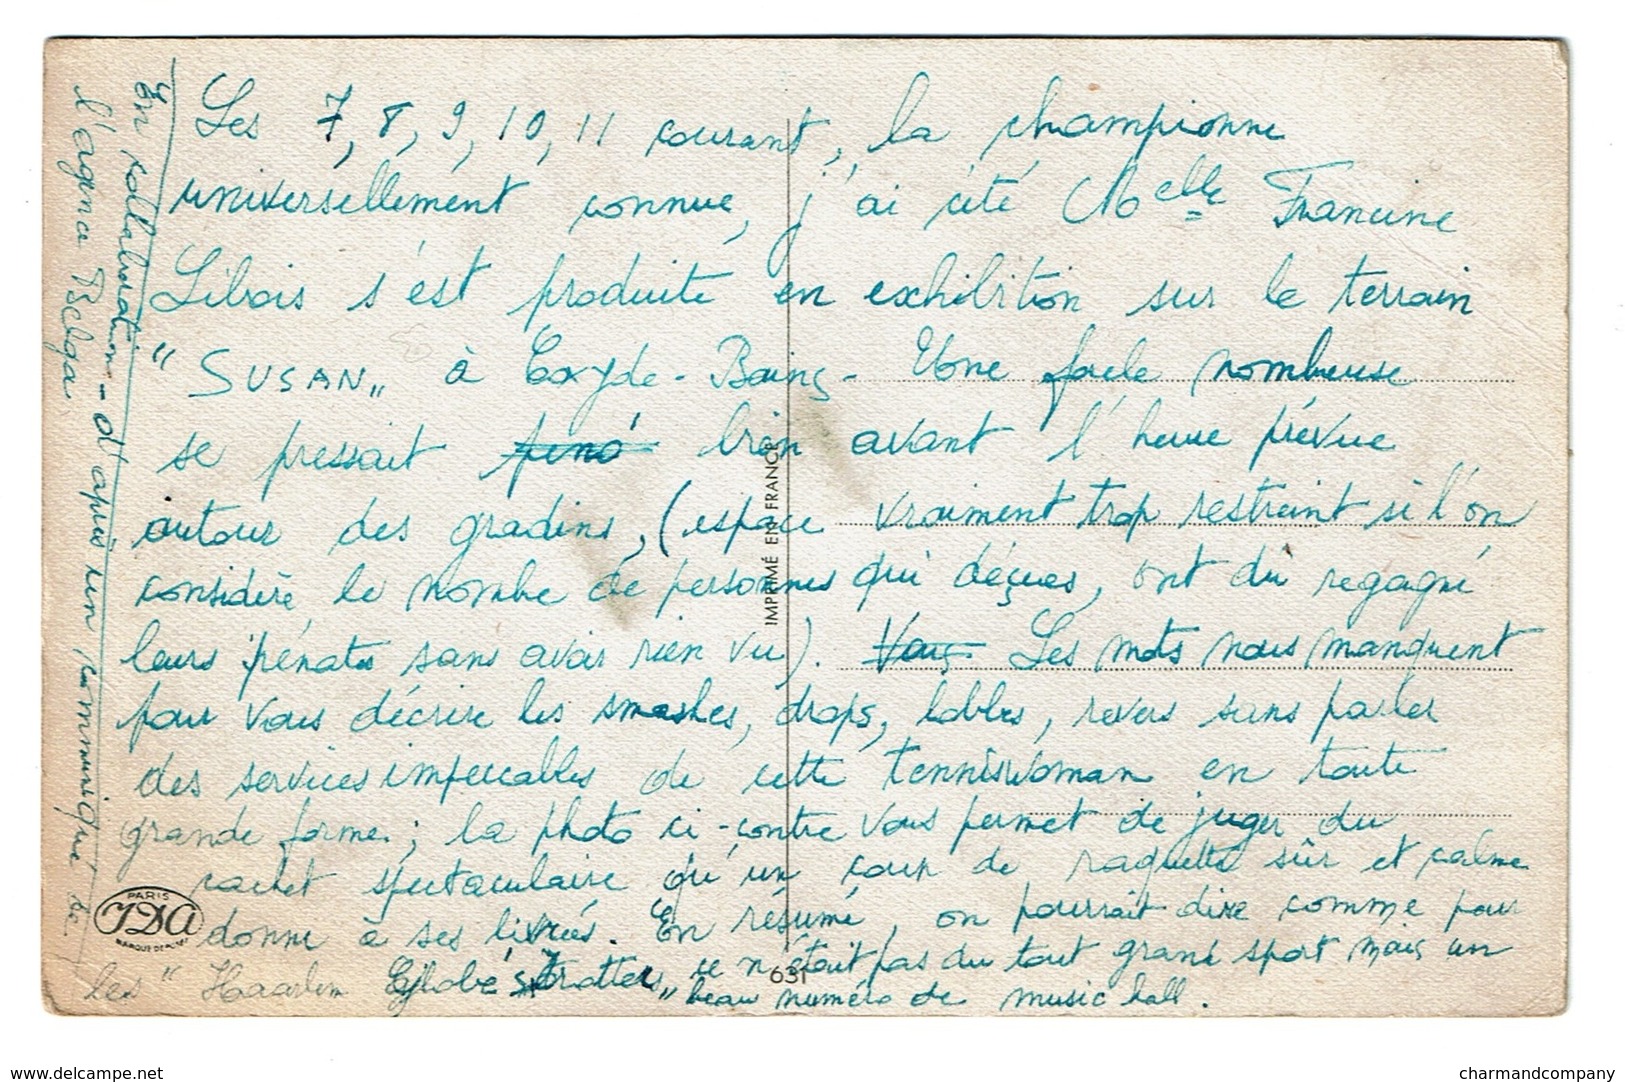 Les 7, 8, 9, 10, 11 courant, la championne
universellement connue, j'ai cité Melle Francine
Libois s'est produite en exhibition sur le terrain
"SUSAN" à Coxyde-Bains - Une foule nombreuse
se pressait bien avant l'heure prévue
autour des gradins, (espace vraiment trop restreint si l'on
considère le nombre de personnes qui déçues, ont dû regagné
leurs pénates sans avoir rien vu). Vous Les mots nous manquent
pour vous décrire les smashes, drops, lobbes, revers sans parler
des services impeccables de cette tenniswoman en toute
grande forme; la photo ci-contre vous permet de juger du
cachet spectaculaire qu'un coup de raquette sûr et calme
donne à ses livrées. En résumé, on pourrait dire comme pour
les "Haarlem Globe Trotters" ce n'était pas du tout grand sport mais un
beau numéro de music hall.
En collaboration - d'après un communiqué de
l'agence Belga
IMPRIMÉ EN FRANCE
631
PARIS
IDA
delcampe.net
charmandcompany